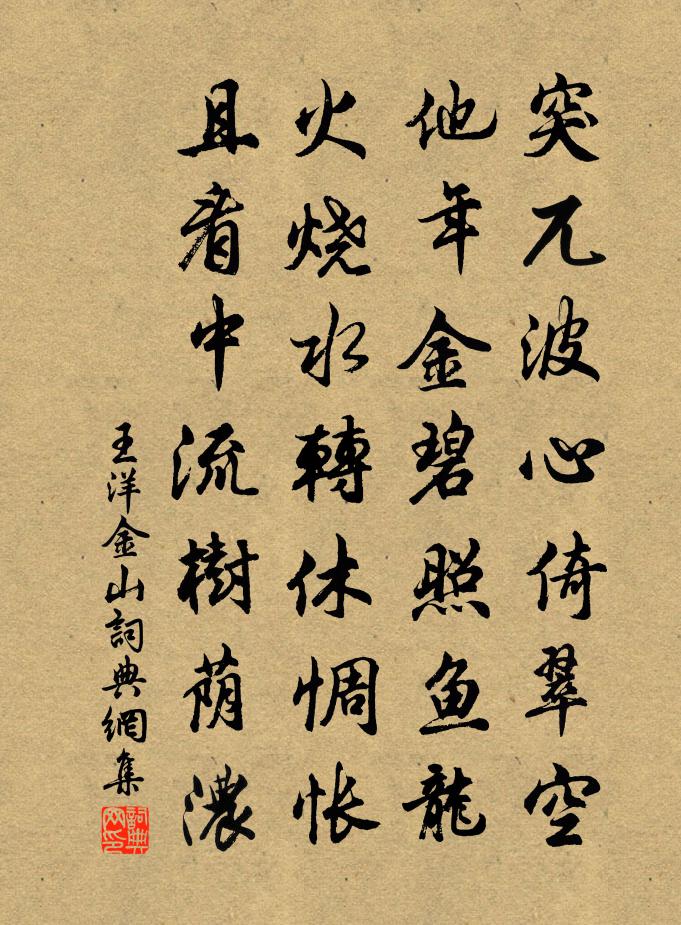 突兀波心倚翠空
他年金碧照鱼龍
火烧水轉休惆怅
且看中流樹荫濃
王洋金山詞典網集
詞典网印